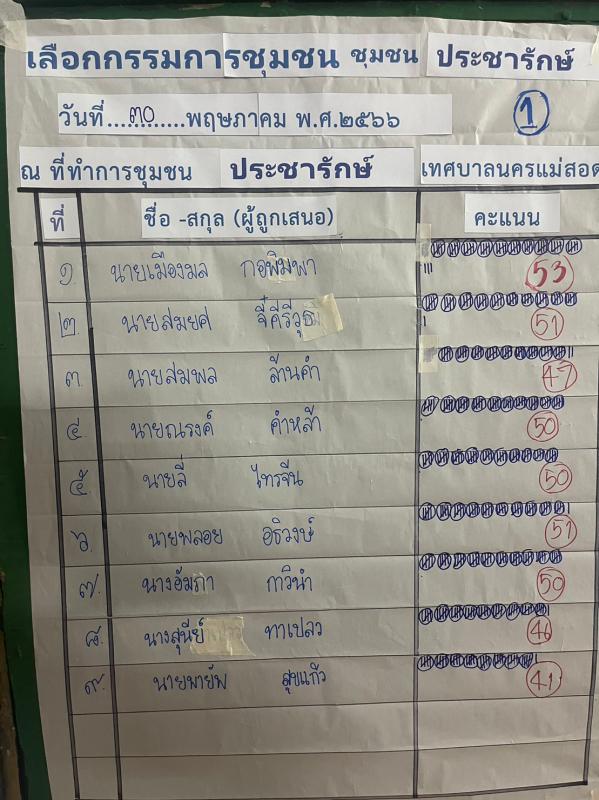 เลือกกรรมการชุมชน ชุมชน ประชารักษ์
วันที่....๓๐......พฤษภาคม พ.ศ.๒๕๖๖ 1
ณ ที่ทำการชุมชน ประชารักษ์ เทศบาลนครแม่สอด
ที่ ชื่อ -สกุล (ผู้ถูกเสนอ) คะแนน
๑. นายเมืองมล กอพิมพา 53
๒. นายสมยศ 51
๓. นายสมพล ล้านคำ 47
๔. นายณรงค์ คำหล้า 50
๕. นายสี่ ไทรจีน 50
๖. นายพลอย อธิวงษ์ 51
๗. นางอัมภา กาวินำ 50
๘. นางสุนีย์ ทาเปลว 46
๙. นายพายัพ สุขแก้ว 41